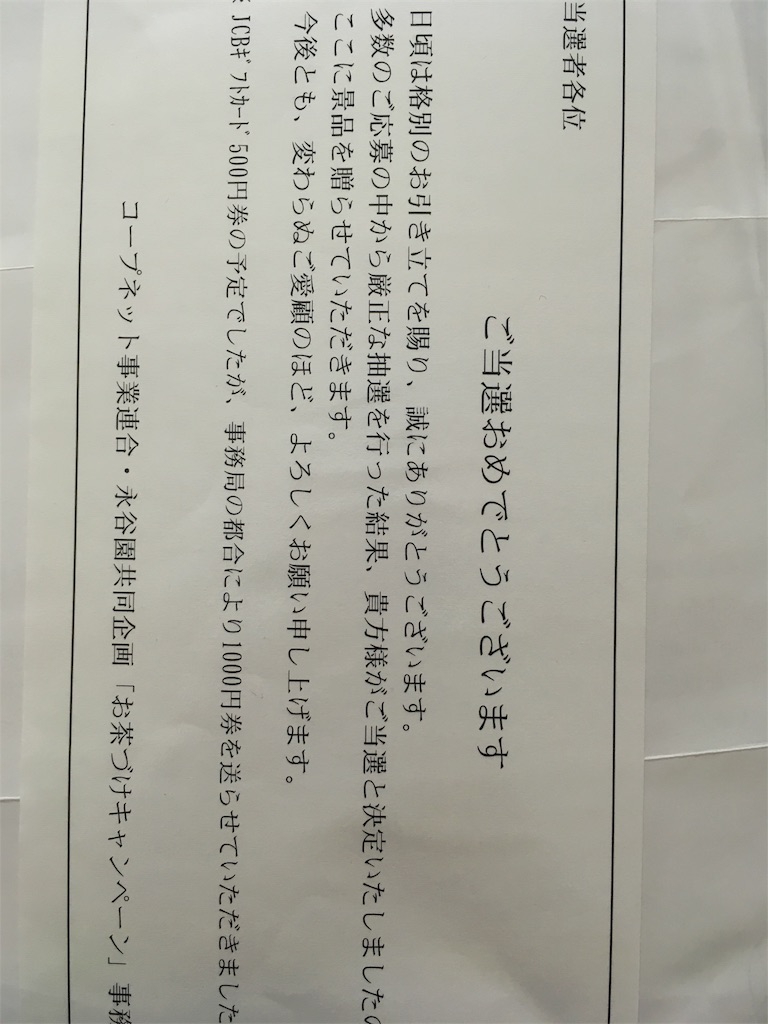 当選者各位
ご当選おめでとうございます
日頃は格別のお引き立てを賜り、誠にありがとうございます。
多数のご応募の中から厳正な抽選を行った結果、貴方様がご当選と決定いたしましたの
ここに景品を贈らせていただきます。
今後とも、変わらぬご愛顧のほど、よろしくお願い申し上げます。
※ JCBｷﾞﾌﾄｶｰﾄﾞ500円券の予定でしたが、事務局の都合により1000円券を送らせていただきました
コープネット事業連合・永谷園共同企画「お茶づけキャンペーン」事務